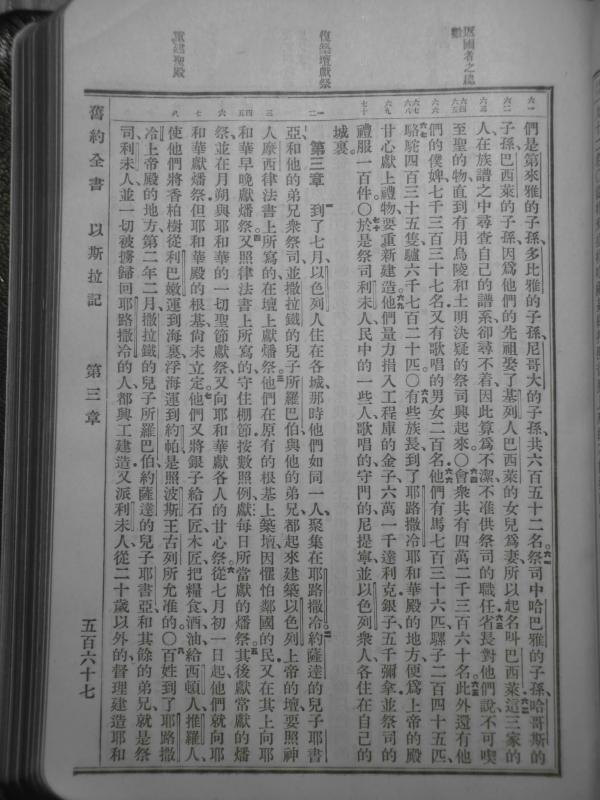 返國者之總數
復築壇獻祭
重建聖殿
們是第來雅的子孫、多比雅的子孫、尼哥大的子孫、共六百五十二名。祭司中哈巴雅的子孫、哈哥斯的
子孫、巴西萊的子孫因爲他們的先祖娶了基列人巴西萊的女兒爲妻所以起名叫巴西萊這三家的
人在族譜之中尋查自己的譜系卻尋不着因此算爲不潔不准供祭司的職任省長對他們說不可喫
至聖的物直到有用烏陵和土明決疑的祭司興起來〇會衆共有四萬二千三百六十名此外還有他
們的僕婢七千三百三十七名又有歌唱的男女二百名他們有馬七百三十六匹騾子二百四十五匹
駱駝四百三十五隻驢六千七百二十匹〇有些族長到了耶路撒冷耶和華殿的地方便爲上帝的殿
甘心獻上禮物要重新建造他們量力捐入工程庫的金子六萬一千達利克銀子五千彌拿並祭司的
禮服一百件〇於是祭司利未人民中的一些人歌唱的守門的尼提寧並以色列衆人各住在自己的
城裏
第三章 到了七月以色列人住在各城那時他們如同一人聚集在耶路撒冷約薩達的兒子耶書
亞和他的弟兄衆祭司並撒拉鐵的兒子所羅巴伯與他的弟兄都起來建築以色列上帝的壇要照神
人摩西律法書上所寫的在壇上獻燔祭他們在原有的根基上築壇因懼怕鄰國的民又在其上向耶
和華早晚獻燔祭又照律法書上所寫的守住棚節按數照例獻每日所當獻的燔祭其後獻常獻的燔
祭並在月朔與耶和華的一切聖節獻祭又向耶和華獻各人的甘心祭從七月初一日起他們就向耶
和華獻燔祭但耶和華殿的根基尚未立定他們又將銀子給石匠木匠把糧食酒油給西頓人推羅人
使他們將香柏樹從利巴嫩運到海裏浮海運到約帕是照波斯王古列所允准的〇百姓到了耶路撒
冷上帝殿的地方第二年二月撒拉鐵的兒子所羅巴伯約薩達的兒子耶書亞和其餘的弟兄就是祭
司利未人並一切被擄歸回耶路撒冷的人都興工建造又派利未人從二十歲以外的督理建造耶和
舊約全書 以斯拉記 第三章 五百六十七